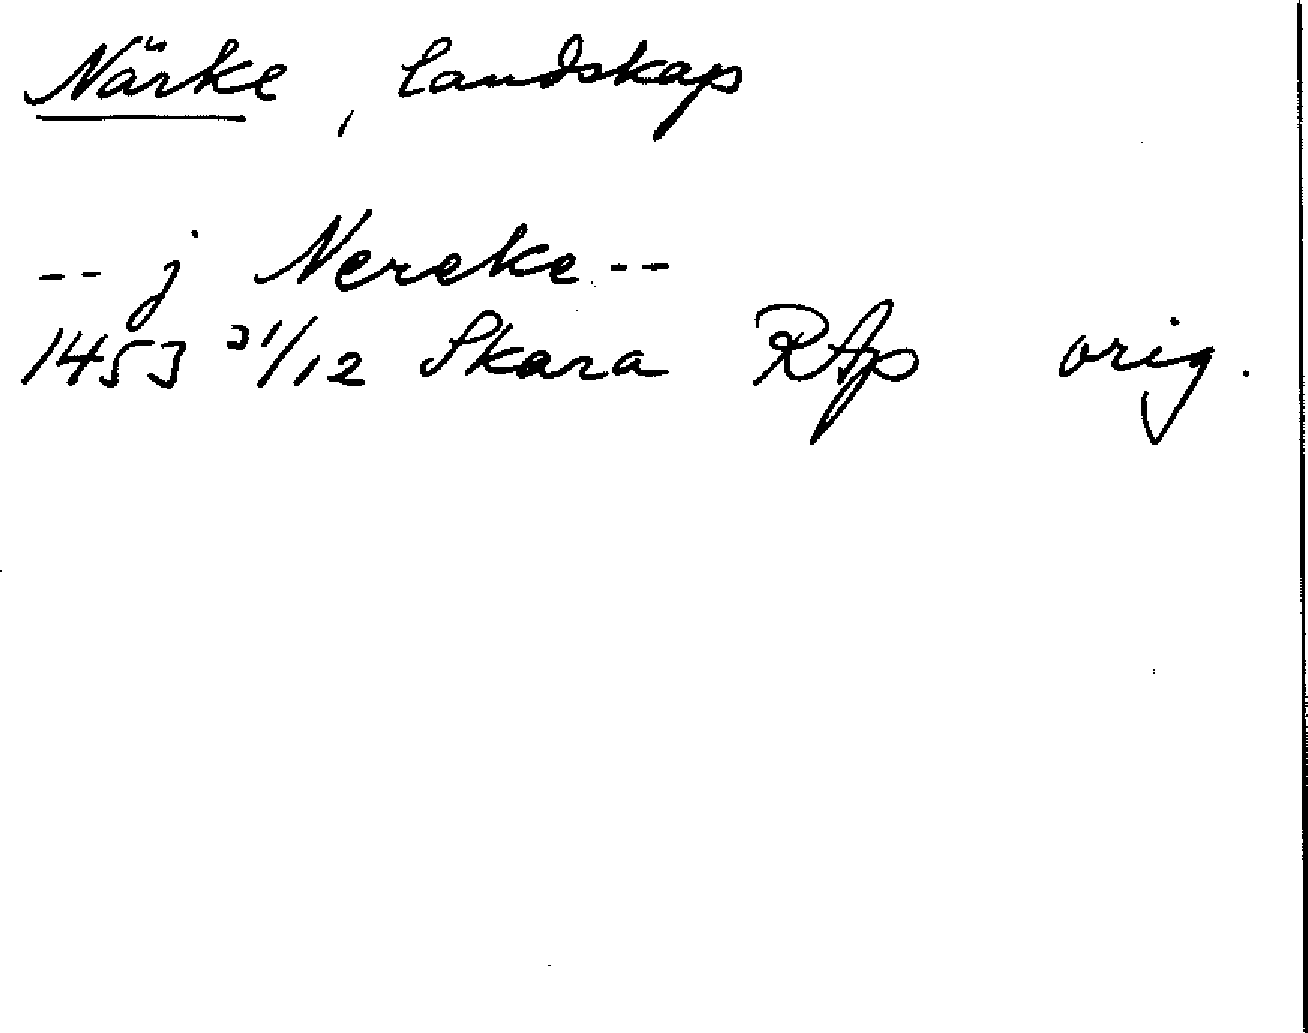 Närke, landskap
-- j Nereke --
1453 31/12 Skara RAp orig.